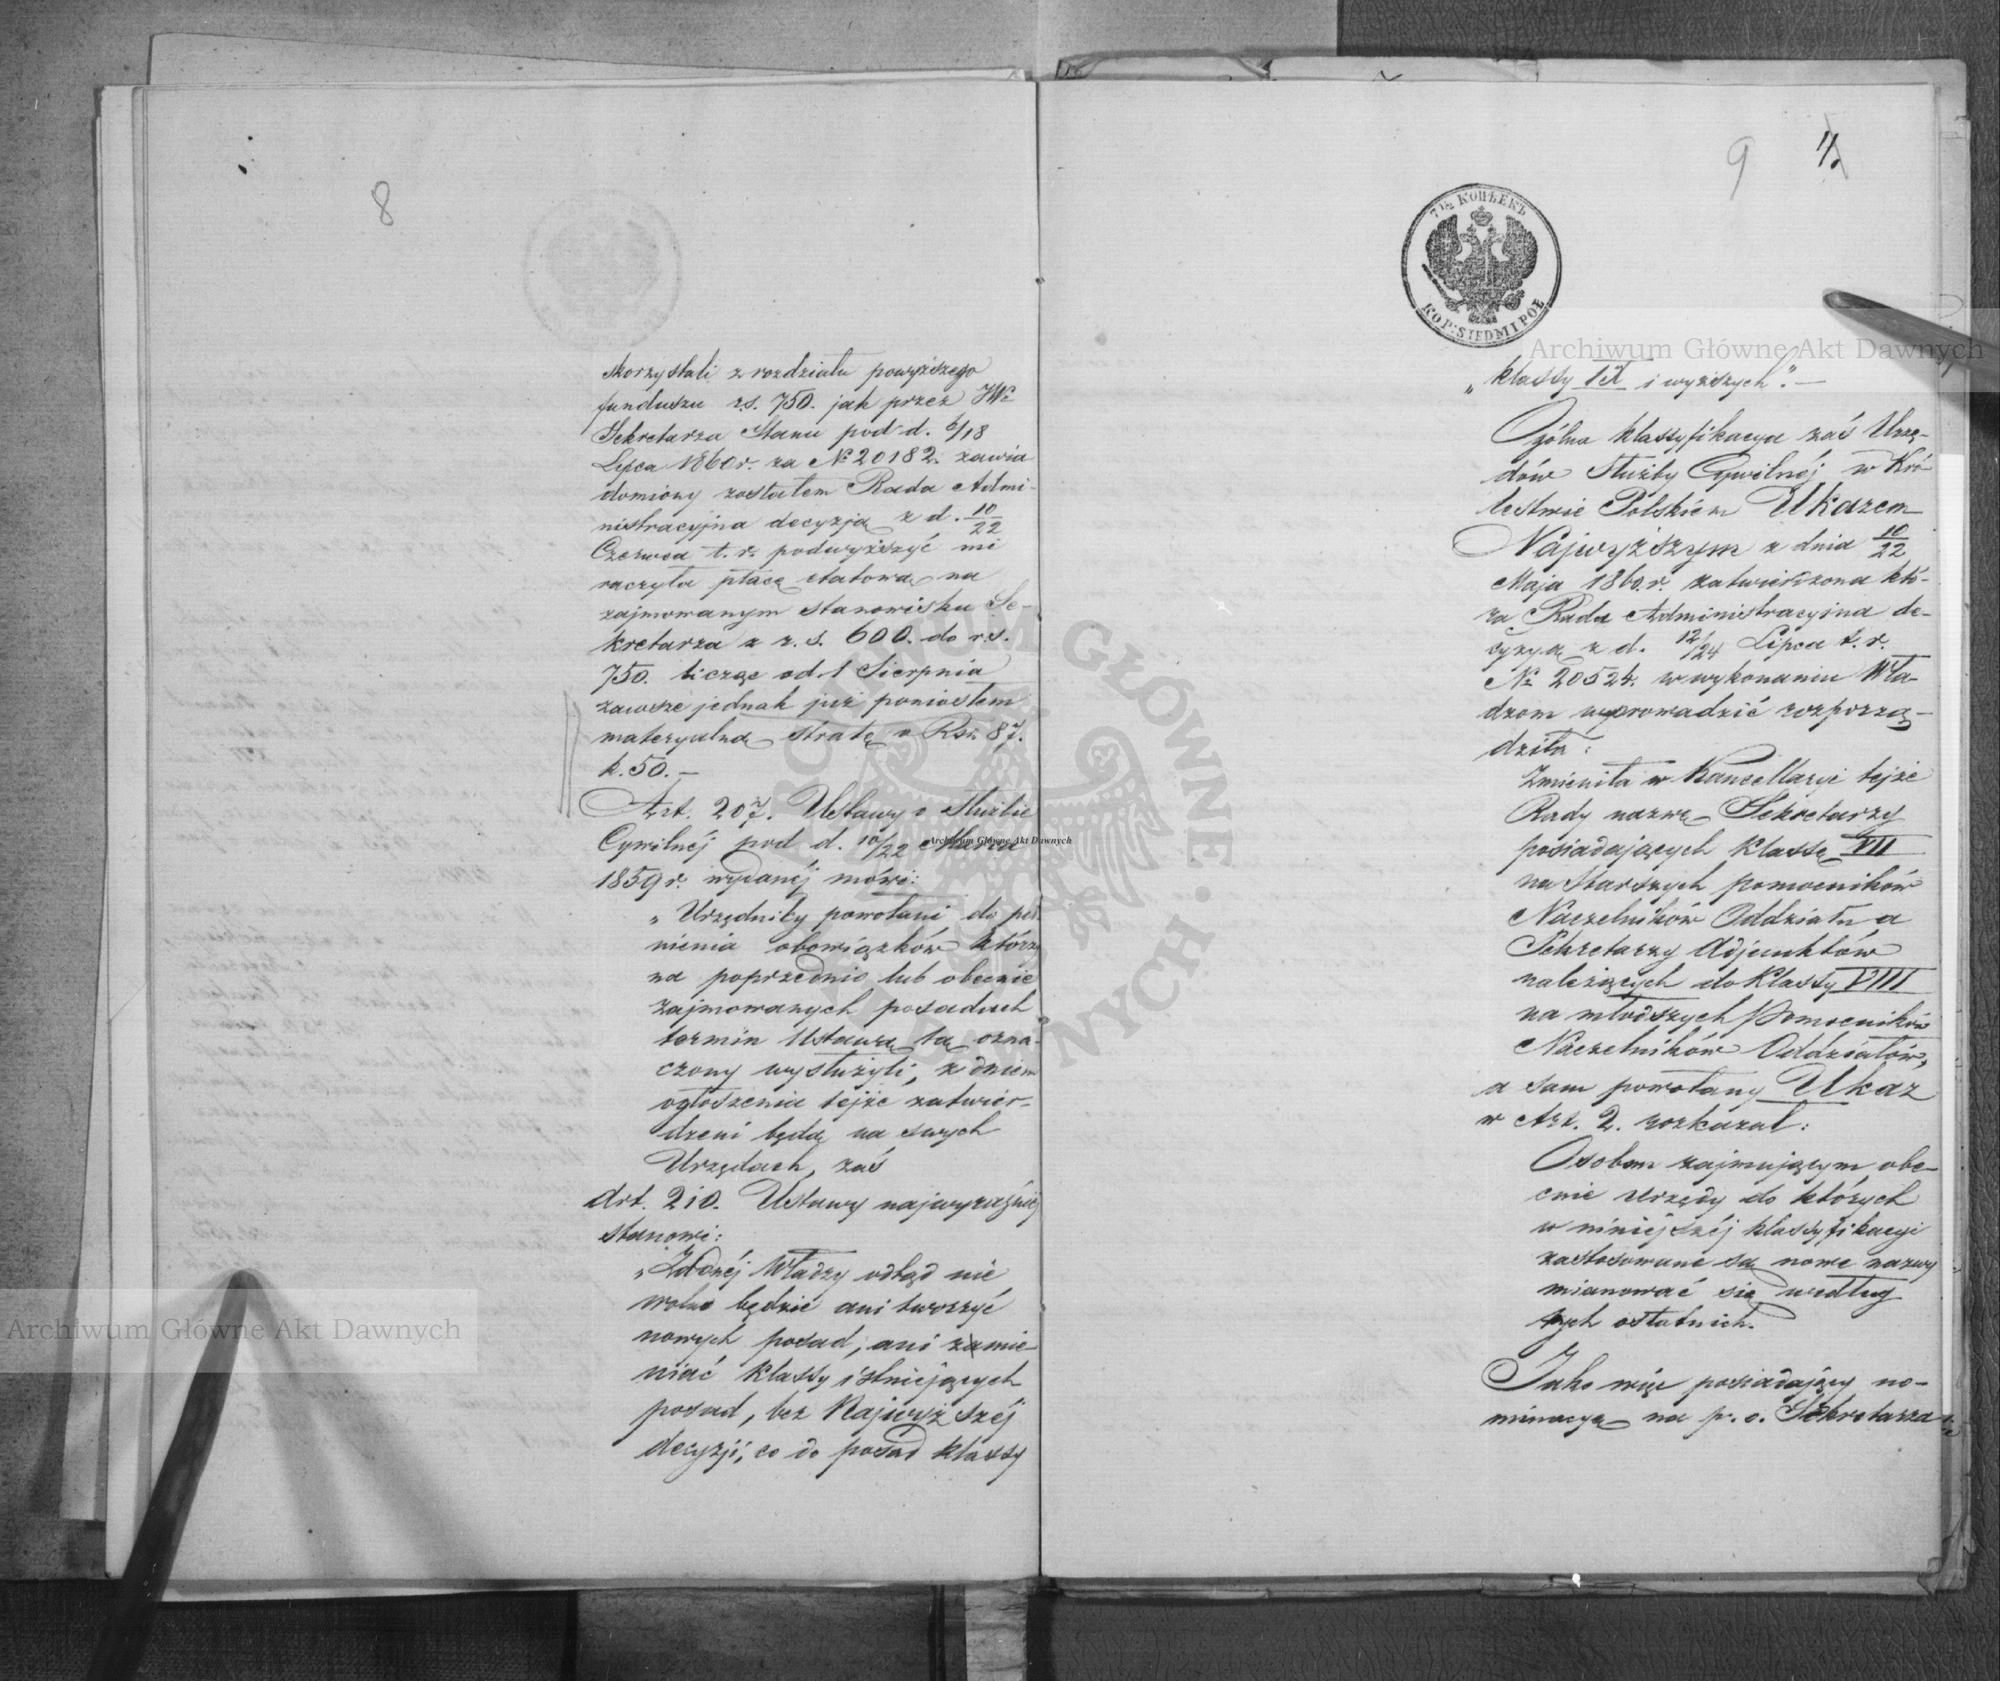 8
skorzystali z rozdziału powyższego
funduszu r.s. 750. jak przez JW°
Sekretarza Stanu pod d. 6/18
Lipca 1860 r. za № 20182. zawia
domiony zostałem Rada Admi-
nistracyjna decyzją z d. 10/22
Czerwca t. r. podwyższyć mi
raczyła płacę etatową na
zajmowanym stanowisku Se-
kretarza z r. s. 600. do r.s.
750. licząc od 1 Sierpnia
zawsze jednak już poniosłem
materyalną stratę o Rsr. 87.
k. 50. —
Art. 207. Ustawy o Służbie
Cywilnéj pod d. 10/22 Marca
1859 r. wydanéj mówi:
„Urzędnicy powołani do peł
nienia obowiązków którzy
na poprzednio lub obecnie
zajmowanych posadach
termin Ustawą tą ozna-
czony wysłużyli, z dniem
ogłoszenia tejże zatwier-
dzeni będą na swych
Urzędach, zaś
Art. 210. Ustawy najwyraźniej
stanowi:
„Żadnéj Władzy odtąd nie
wolno będzie ani tworzyć
nowych posad, ani zamie-
niać klassy istniejących
posad, bez Najwyższéj
decyzji, co do posad klassy
9 4.
7½ КОПѢЕКЪ
KOP: SIEDM I PÓŁ
„klassy IX i wyższych”. —
Ogólna klassyfikacya zaś Urzę-
dów Służby Cywilnéj w Kró-
lestwie Polskiém Ukazem
Najwyższym z dnia 10/22
Maja 1860 r. zatwierdzona któ-
rą Rada Administracyjna de-
cyzyą z d. 12/24 Lipca t. r.
№ 20524. w wykonaniu Wła-
dzom wprowadzić rozporzą-
dziła:
Zmieniła w Kancellaryi tejże
Rady nazwę Sekretarzy
posiadających klassę VII
na starszych pomocników
Naczelników Oddziału a
Sekretarzy Adjunktów
należących do klassy VIII
na młodszych Pomocników
Naczelników Oddziałów,
a sam powołany Ukaz
w Art. 2. rozkazał:
Osobom zajmującym obe-
cnie urzędy do których
w niniejszéj klassyfikacyi
zastosowane są nowe nazwy
mianować się według
tych ostatnich.
Jako więc posiadający no-
minacyą na p. o. Sekretarza
Archiwum Główne Akt Dawnych
Archiwum Główne Akt Dawnych
Archiwum Główne Akt Dawnych
ARCHIWUM GŁÓWNE AKT DAWNYCH